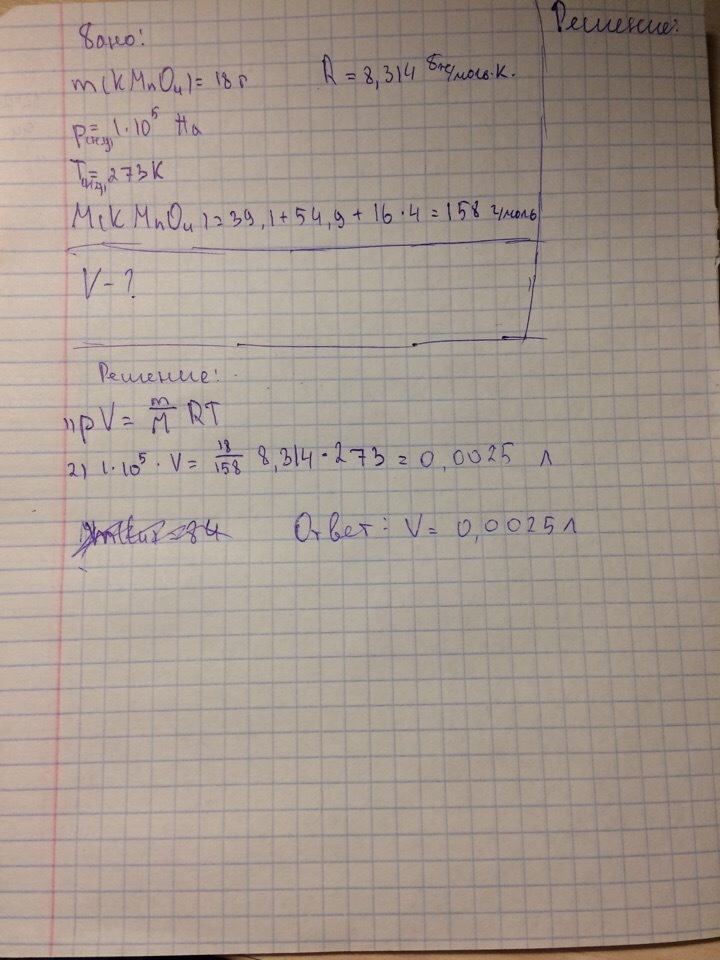 Дано:
Решение:
m(KMnO₄)=18 г R=8,314 Дж/моль·К.
p(н.у)=1·10⁵ Па
T(н.у)=273К
M(KMnO₄)=39,1+54,9+16·4=158 г/моль
V-?
Решение:
1) pV = m/M RT
2) 1·10⁵·V = 18/158 8,314·273 = 0,0025 л
Ответ: V= 0,0025 л